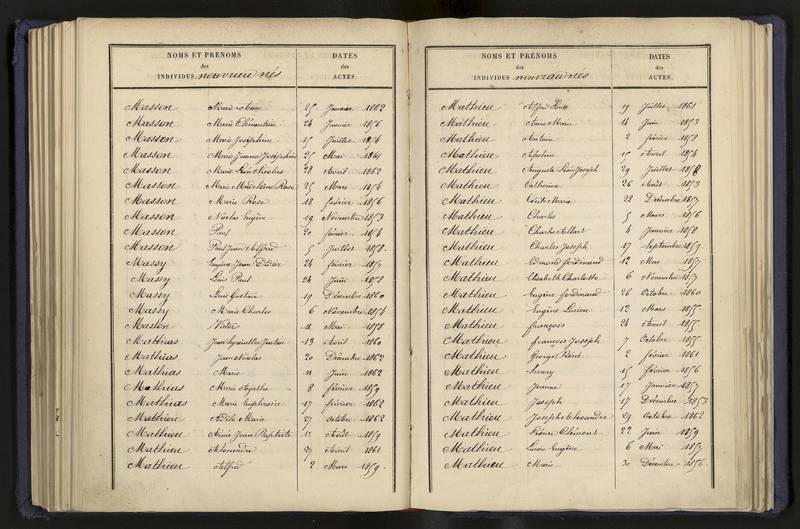 NOMS ET PRÉNOMS
des
INDIVIDUS nouveau nés
DATES
des
ACTES.
Masson Marie 25 Janvier 1862
Masson Marie Clémentine 24 Janvier 1856
Masson Marie Joséphine 15 Juillet 1854
Masson Marie Jeanne Joséphine 25 Mai 1861
Masson Marie Léon Nicolas 28 Avril 1862
Masson Marie Madeleine Rose 25 Mars 1854
Masson Marie Rose 18 février 1856
Masson Nicolas Eugène 19 Novembre 1853
Masson Paul 20 février 1854
Masson Paul Jean Alfred 5 Juillet 1858
Massy Eugène Jean Didier 24 février 1857
Massy Louis Paul 24 Juin 1858
Massy Louis Gustave 19 Décembre 1860
Massy Marie Charles 6 Novembre 1854
Maston Victor 11 Mai 1858
Mathias Jean Hyacinthe Justin 13 Avril 1860
Mathias Jean Nicolas 20 Décembre 1862
Mathias Marie 11 Juin 1862
Mathias Marie Agathe 8 février 1859
Mathias Marie Euphrasie 17 février 1862
Mathieu Adèle Marie 27 octobre 1862
Mathieu Jean Baptiste 12 Août 1859
Mathieu Alexandre 27 Avril 1861
Mathieu Alfred 2 Mars 1859
NOMS ET PRÉNOMS
des
INDIVIDUS nouveau nés
DATES
des
ACTES.
Mathieu Alfred 19 Juillet 1861
Mathieu Anne Marie 14 Juin 1853
Mathieu Antoine 2 février 1858
Mathieu 15 Avril 1854
Mathieu Auguste Léon Joseph 29 Juillet 1858
Mathieu Catherine 26 Août 1853
Mathieu Cécile Maria 28 Décembre 1857
Mathieu Charles 5 Mars 1856
Mathieu Charles Albert 4 Janvier 1858
Mathieu Charles Joseph 17 Septembre 1859
Mathieu Edmond ferdinand 12 Mai 1857
Mathieu Elisabeth Charlotte 6 Novembre 1857
Mathieu Eugène ferdinand 26 Octobre 1860
Mathieu Eugène Lucien 12 Mars 1855
Mathieu françois 24 Avril 1855
Mathieu françois Joseph 7 Octobre 1855
Mathieu Georges René 2 février 1861
Mathieu henry 15 février 1856
Mathieu Jeanne 17 Janvier 1857
Mathieu Joseph 17 Décembre 1853
Mathieu Joseph Alexandre 29 Octobre 1862
Mathieu Clément 22 Juin 1859
Mathieu Lucie Eugène 6 Mai 1857
Mathieu Marie 30 Décembre 1856